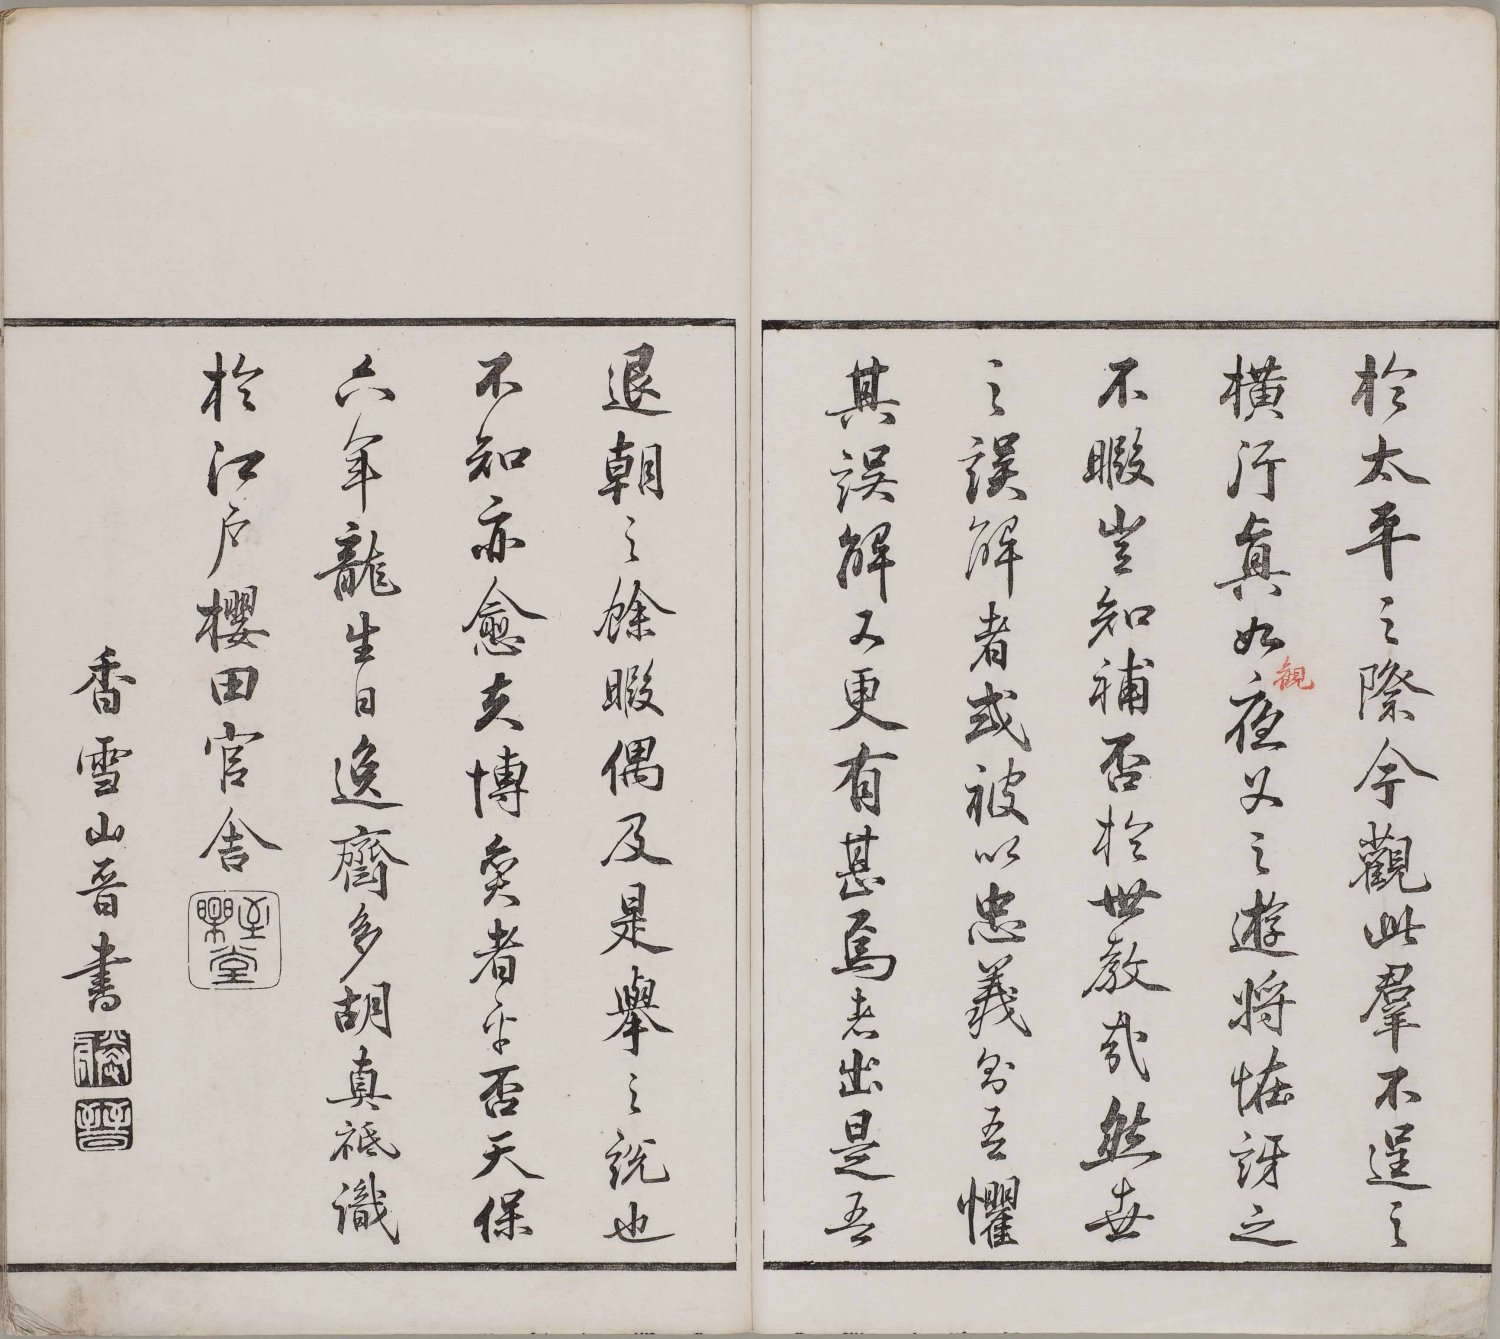 於太平之際今觀此羣不逞之
橫行真如夜叉之遊將怪訝之
觀
不暇豈知補否於世教哉然世
之誤解者或被以忠義則吾懼
其誤解又更有甚焉者出是吾
退朝之餘暇偶及是舉之說也
不知亦愈夫博奕者乎否天保
六年龍生日逸齋多胡真祗識
於江戶櫻田官舍
香雪山晉書